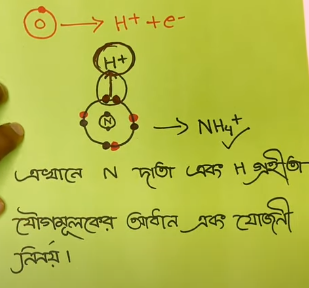 O → H⁺ + e⁻
H⁺
N → NH₄⁺
এখানে N দাতা এবং H গ্রহীতা
যৌগমূলকের আধান এবং যোজনী
নির্নয়।